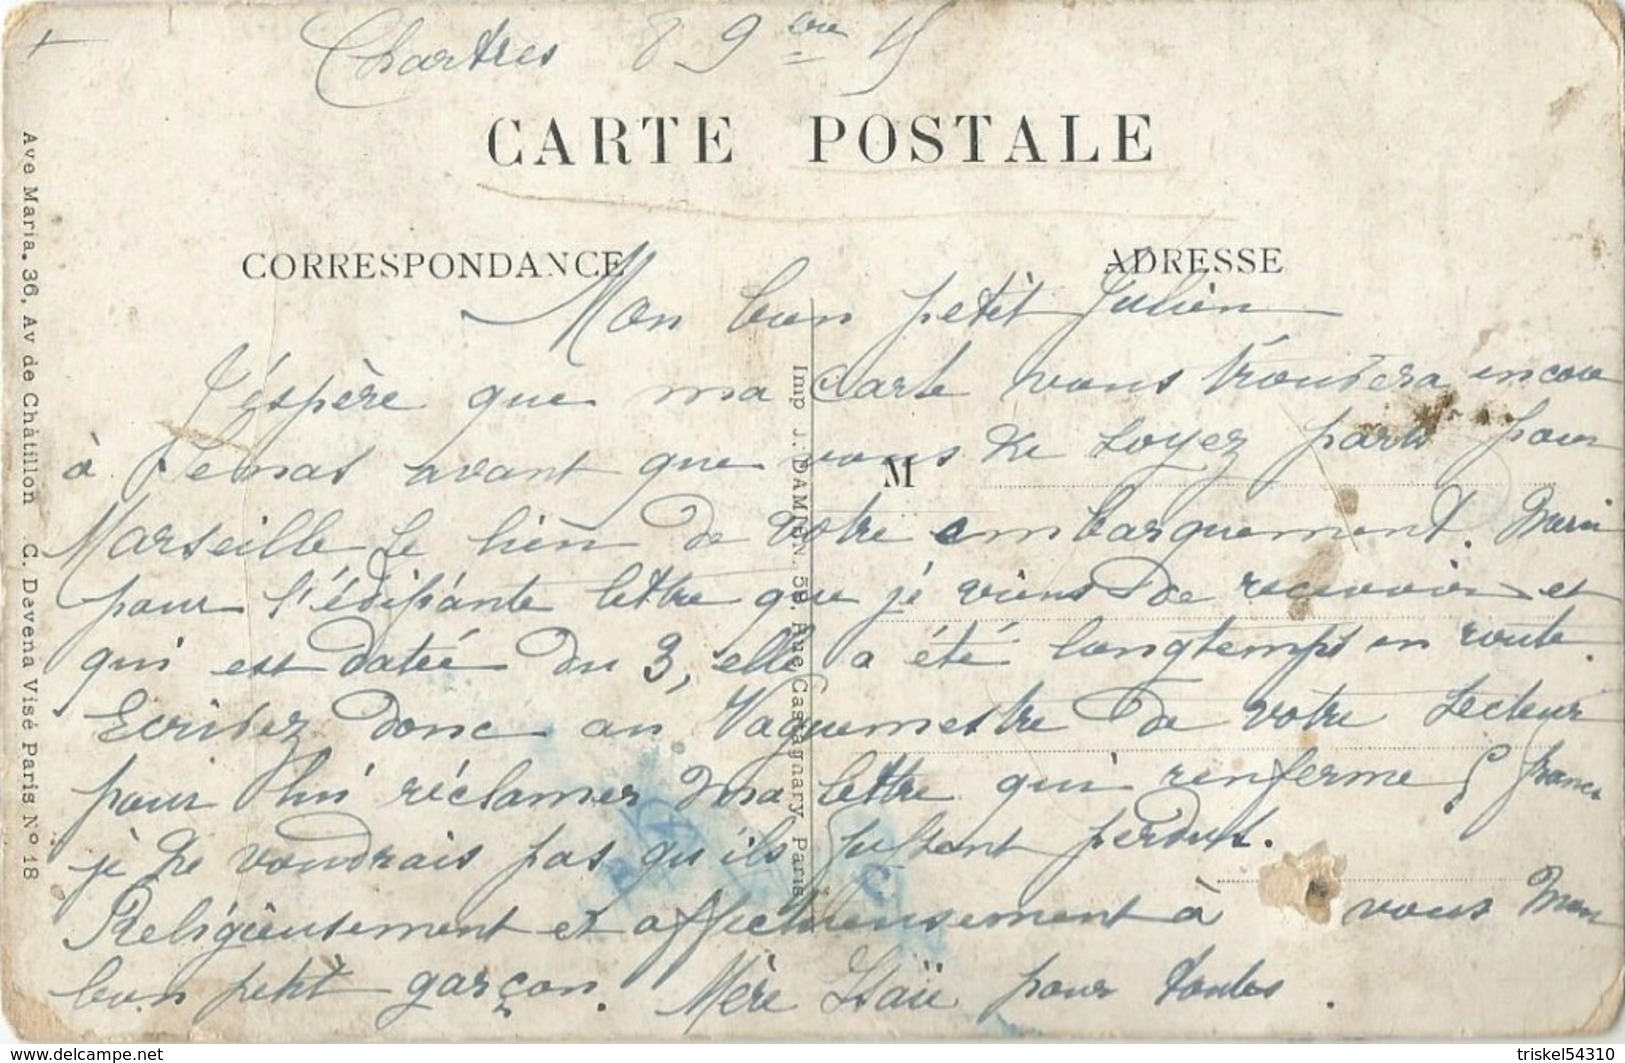 Chartres 8 9bre 15
CARTE POSTALE
CORRESPONDANCE
ADRESSE
Mon bon petit Julien
J'éspère que ma carte vous trouvera encore
à avant que vous ne soyez parti pour
M
Marseille le lieu de votre embarquement. Merci
pour l'édifiante lettre que je viens de recevoir et
qui est datée du 3, elle a été longtemps en route.
Ecrivez donc au Vaguemestre de votre secteur
pour lui réclamer ma lettre qui renferme 5 francs
je ne voudrais pas qu'ils fussent perdus.
Religieusement et affectueusement à vous mon
bon petit garçon. Mère pour toutes.
Ave Maria, 36, Av de Châtillon G. Davena Visé Paris No 18
Imp J. DAMION. 59, Rue Castagnary, Paris
www.delcampe.net
triskel54310